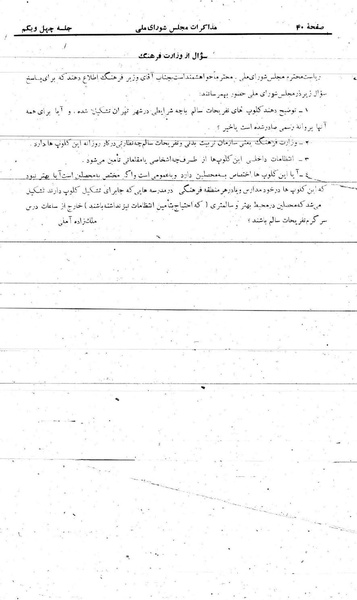 صفحهٔ ۴۰
مذاکرات مجلس شورای ملی
جلسه چهل و یکم
سؤال از وزارت فرهنگ
ریاست محترم مجلس شورای ملی. محترما خواهشمند است جناب آقای وزیر فرهنگ اطلاع دهند که برای پاسخ
سؤال زیر در مجلس شورای ملی حضور بهم رسانند.
۱ ـ توضیح دهند کلوپ های تفریحات سالم با چه شرایطی در شهر تهران تشکیل شده. و آیا برای همه
آنها پروانه رسمی صادر شده است یا خیر ؟
۲ ـ وزارت فرهنگ یعنی سازمان تربیت بدنی و تفریحات سالم چه نظارتی در کار روزانه این کلوپ ها دارد.
۳ ـ انتظامات داخلی این کلوپ ها از طرف چه اشخاصی یا مقاماتی تأمین می شود.
۴ ـ آیا این کلوپ ها اختصاص به محصلین دارد و یا عمومی است و اگر مختص به محصلین است آیا بهتر نبود
که این کلوپ ها در خود مدارس و یا در هر منطقه فرهنگی در مدرسه هایی که جا برای تشکیل کلوپ دارند تشکیل
می شد که محصلین در محیط بهتر و سالمتری ( که احتیاج بتأمین انتظامات نیز نداشته باشند ) خارج از ساعات درس
سرگرم تفریحات سالم باشند ؟
ملک زاده آملی